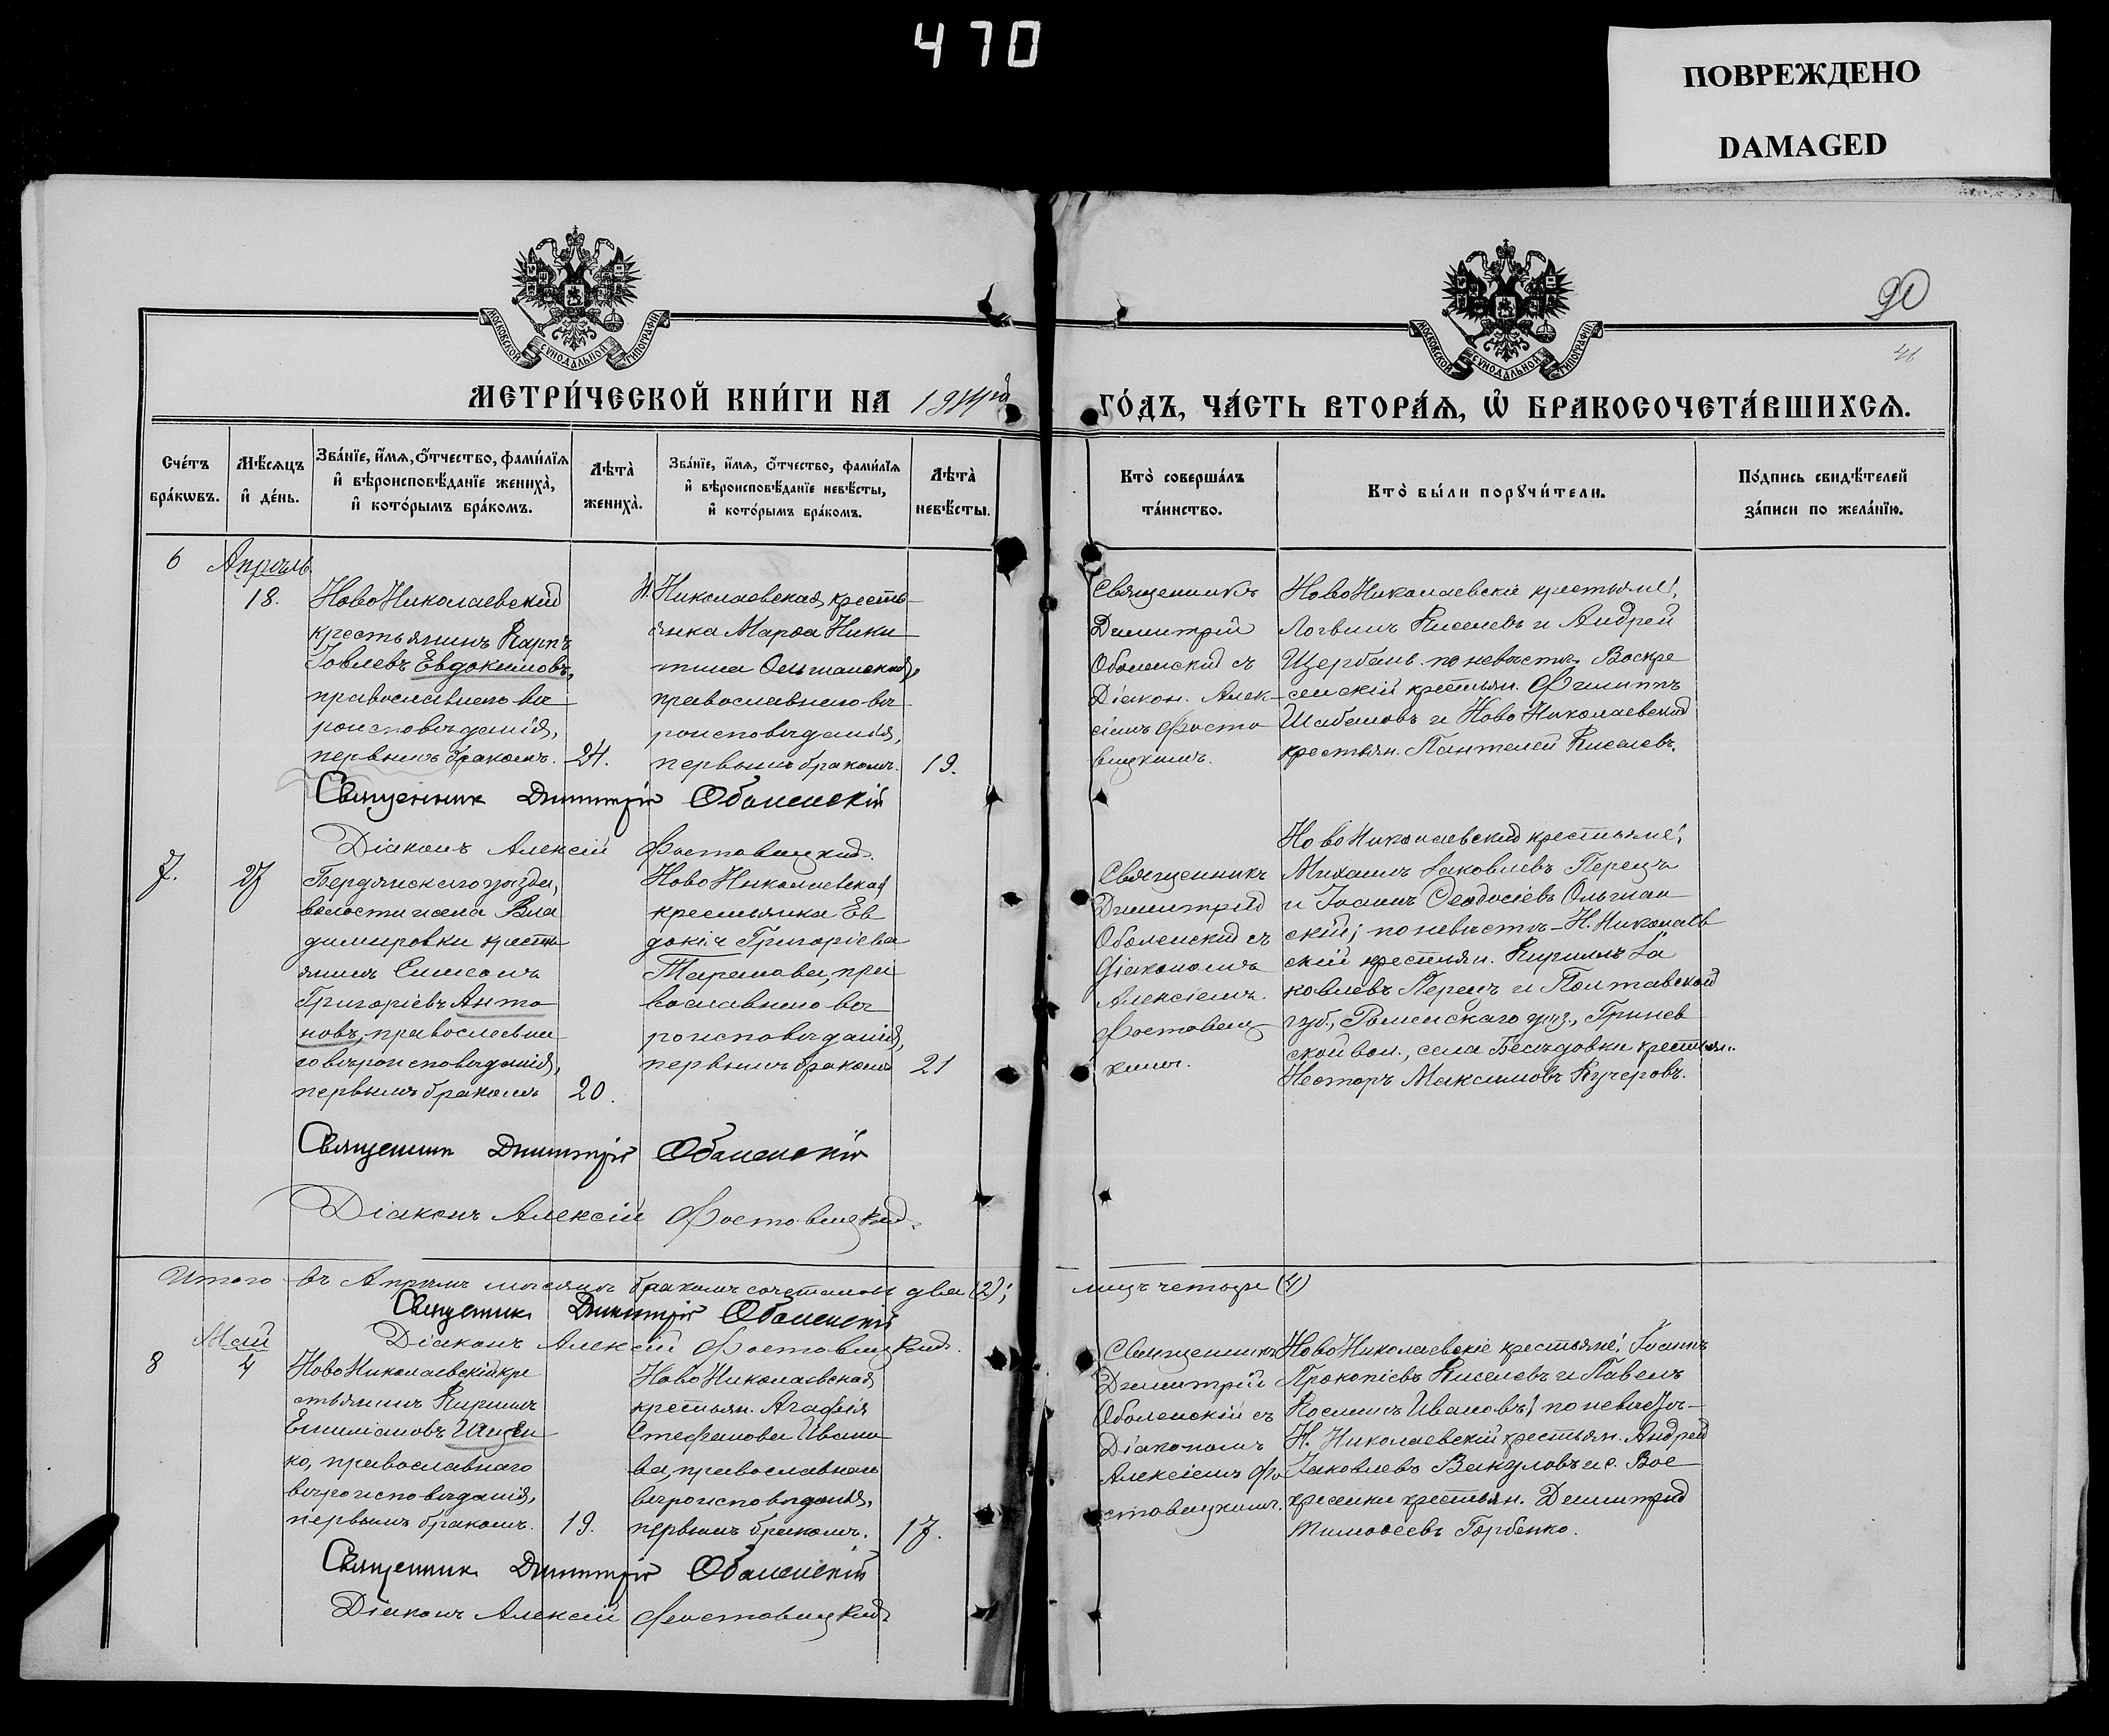 470
ПОВРЕЖДЕНО
DAMAGED
МОСКОВСКОЙ СѴНОДАЛЬНОЙ ТИПОГРАФІИ
МОСКОВСКОЙ СѴНОДАЛЬНОЙ ТИПОГРАФІИ
90
МЕТРИ́ЧЕСКОЙ КНИ́ГИ НА
ГО́ДЪ, ЧА́СТЬ ВТОРА́Ѧ, Ѡ҆ БРАКОСОЧЕТА́ВШИХСѦ.
Сче́тъ
бра́кѡвъ.
Мѣ́сѧцъ
и҆ де́нь.
Зва́нїе, и҆́мѧ, ѻ҆́тчество, фами́лїѧ
и҆ вѣроисповѣ́данїе жениха̀,
и҆ кото́рымъ бра́комъ.
Лѣта̀
жениха̀.
Зва́нїе, и҆́мѧ, ѻ҆́тчество, фами́лїѧ
и҆ вѣроисповѣ́данїе невѣ́сты,
и҆ кото́рымъ бра́комъ.
Лѣта̀
невѣ́сты.
Кто̀ соверша́лъ
та́инство.
Кто̀ бы́ли порꙋчи́тели.
По́дпись свидѣ́телей
за́писи по жела́нїю.
6
Апрѣль
18.
НовоНиколаевскій
крестьянинъ Карпъ
Іовлевъ Евдокимовъ,
православнаго вѣ
роисповѣданія,
первымъ бракомъ.
24.
Н. Николаевская кресть-
янка Марѳа Ники
тина Ольшанская,
православнаго вѣ
роисповѣданія,
первымъ бракомъ.
19.
Священникъ
Димитрій
Оболенскій съ
Діакон. Алек-
сіемъ Фосто
вицкимъ.
НовоНиколаевскіе крестьяне:
Логвинъ Киселевъ и Андрей
Щербань. по невѣстѣ Воскре
сенскій крестьян. Филиппъ
Шабановъ и НовоНиколаевскій
крестьян. Пантелей Киселевъ.
Священникъ Димитрій Оболенскій
Діаконъ Алексій Фостовицкій.
7.
27
Бердянскаго уѣзда,
волости и села Вла
димировки кресть
янинъ Симеонъ
Григоріевъ Анто
новъ, православна
го вѣроисповѣданія,
первымъ бракомъ
20.
НовоНиколаевская
крестьянка Ев
докія Григоріева
Таранова, пра
вославнаго вѣ
роисповѣданія,
первымъ бракомъ
21
Священникъ
Димитрій
Оболенскій съ
діакономъ
Алексіемъ
Фостовиц-
кимъ.
НовоНиколаевскій крестьяне:
Михаилъ Іаковлевъ Перецъ
и Іоаннъ Ѳеодосіевъ Ольшан
скій; по невѣстѣ - Н. Николаев
скій крестьян. Кириллъ Іа
ковлевъ Перецъ и Полтавской
губ., Роменскаго уѣз., Гринев
ской вол., села Бесѣдовки крестьян.
Несторъ Максимовъ Кучеровъ.
Священникъ Димитрій Оболенскій
Діаконъ Алексій Фостовицкій.
Итого въ Апрѣлѣ мѣсяцѣ бракомъ сочетановъ два (2); лицъ четыре (4)
Священникъ Димитрій Оболенскій
Діаконъ Алексій Фостовицкій.
Май
8
4
НовоНиколаевскій кре
стьянинъ Кириллъ
Емиліановъ Ищен
ко, православнаго
вѣроисповѣданія,
первымъ бракомъ.
19.
НовоНиколаевская
крестьян. Агафія
Стефанова Ивано
ва, православнаго
вѣроисповѣданія,
первымъ бракомъ.
17.
Священникъ
Димитрій
Оболенскій съ
Діакономъ
Алексіемъ Фо
стовицкимъ.
НовоНиколаевскіе крестьяне: Іоаннъ
Прокопіевъ Киселевъ и Павелъ
Косминъ Ивановъ; по невѣстѣ-
Н. Николаевскій крестьян. Андрей
Іаковлевъ Вакуловъ и с. Вос
кресенки крестьян. Димитрій
Тимоѳеевъ Горбенко.
Священникъ Димитрій Оболенскій
Діаконъ Алексій Фостовицкій